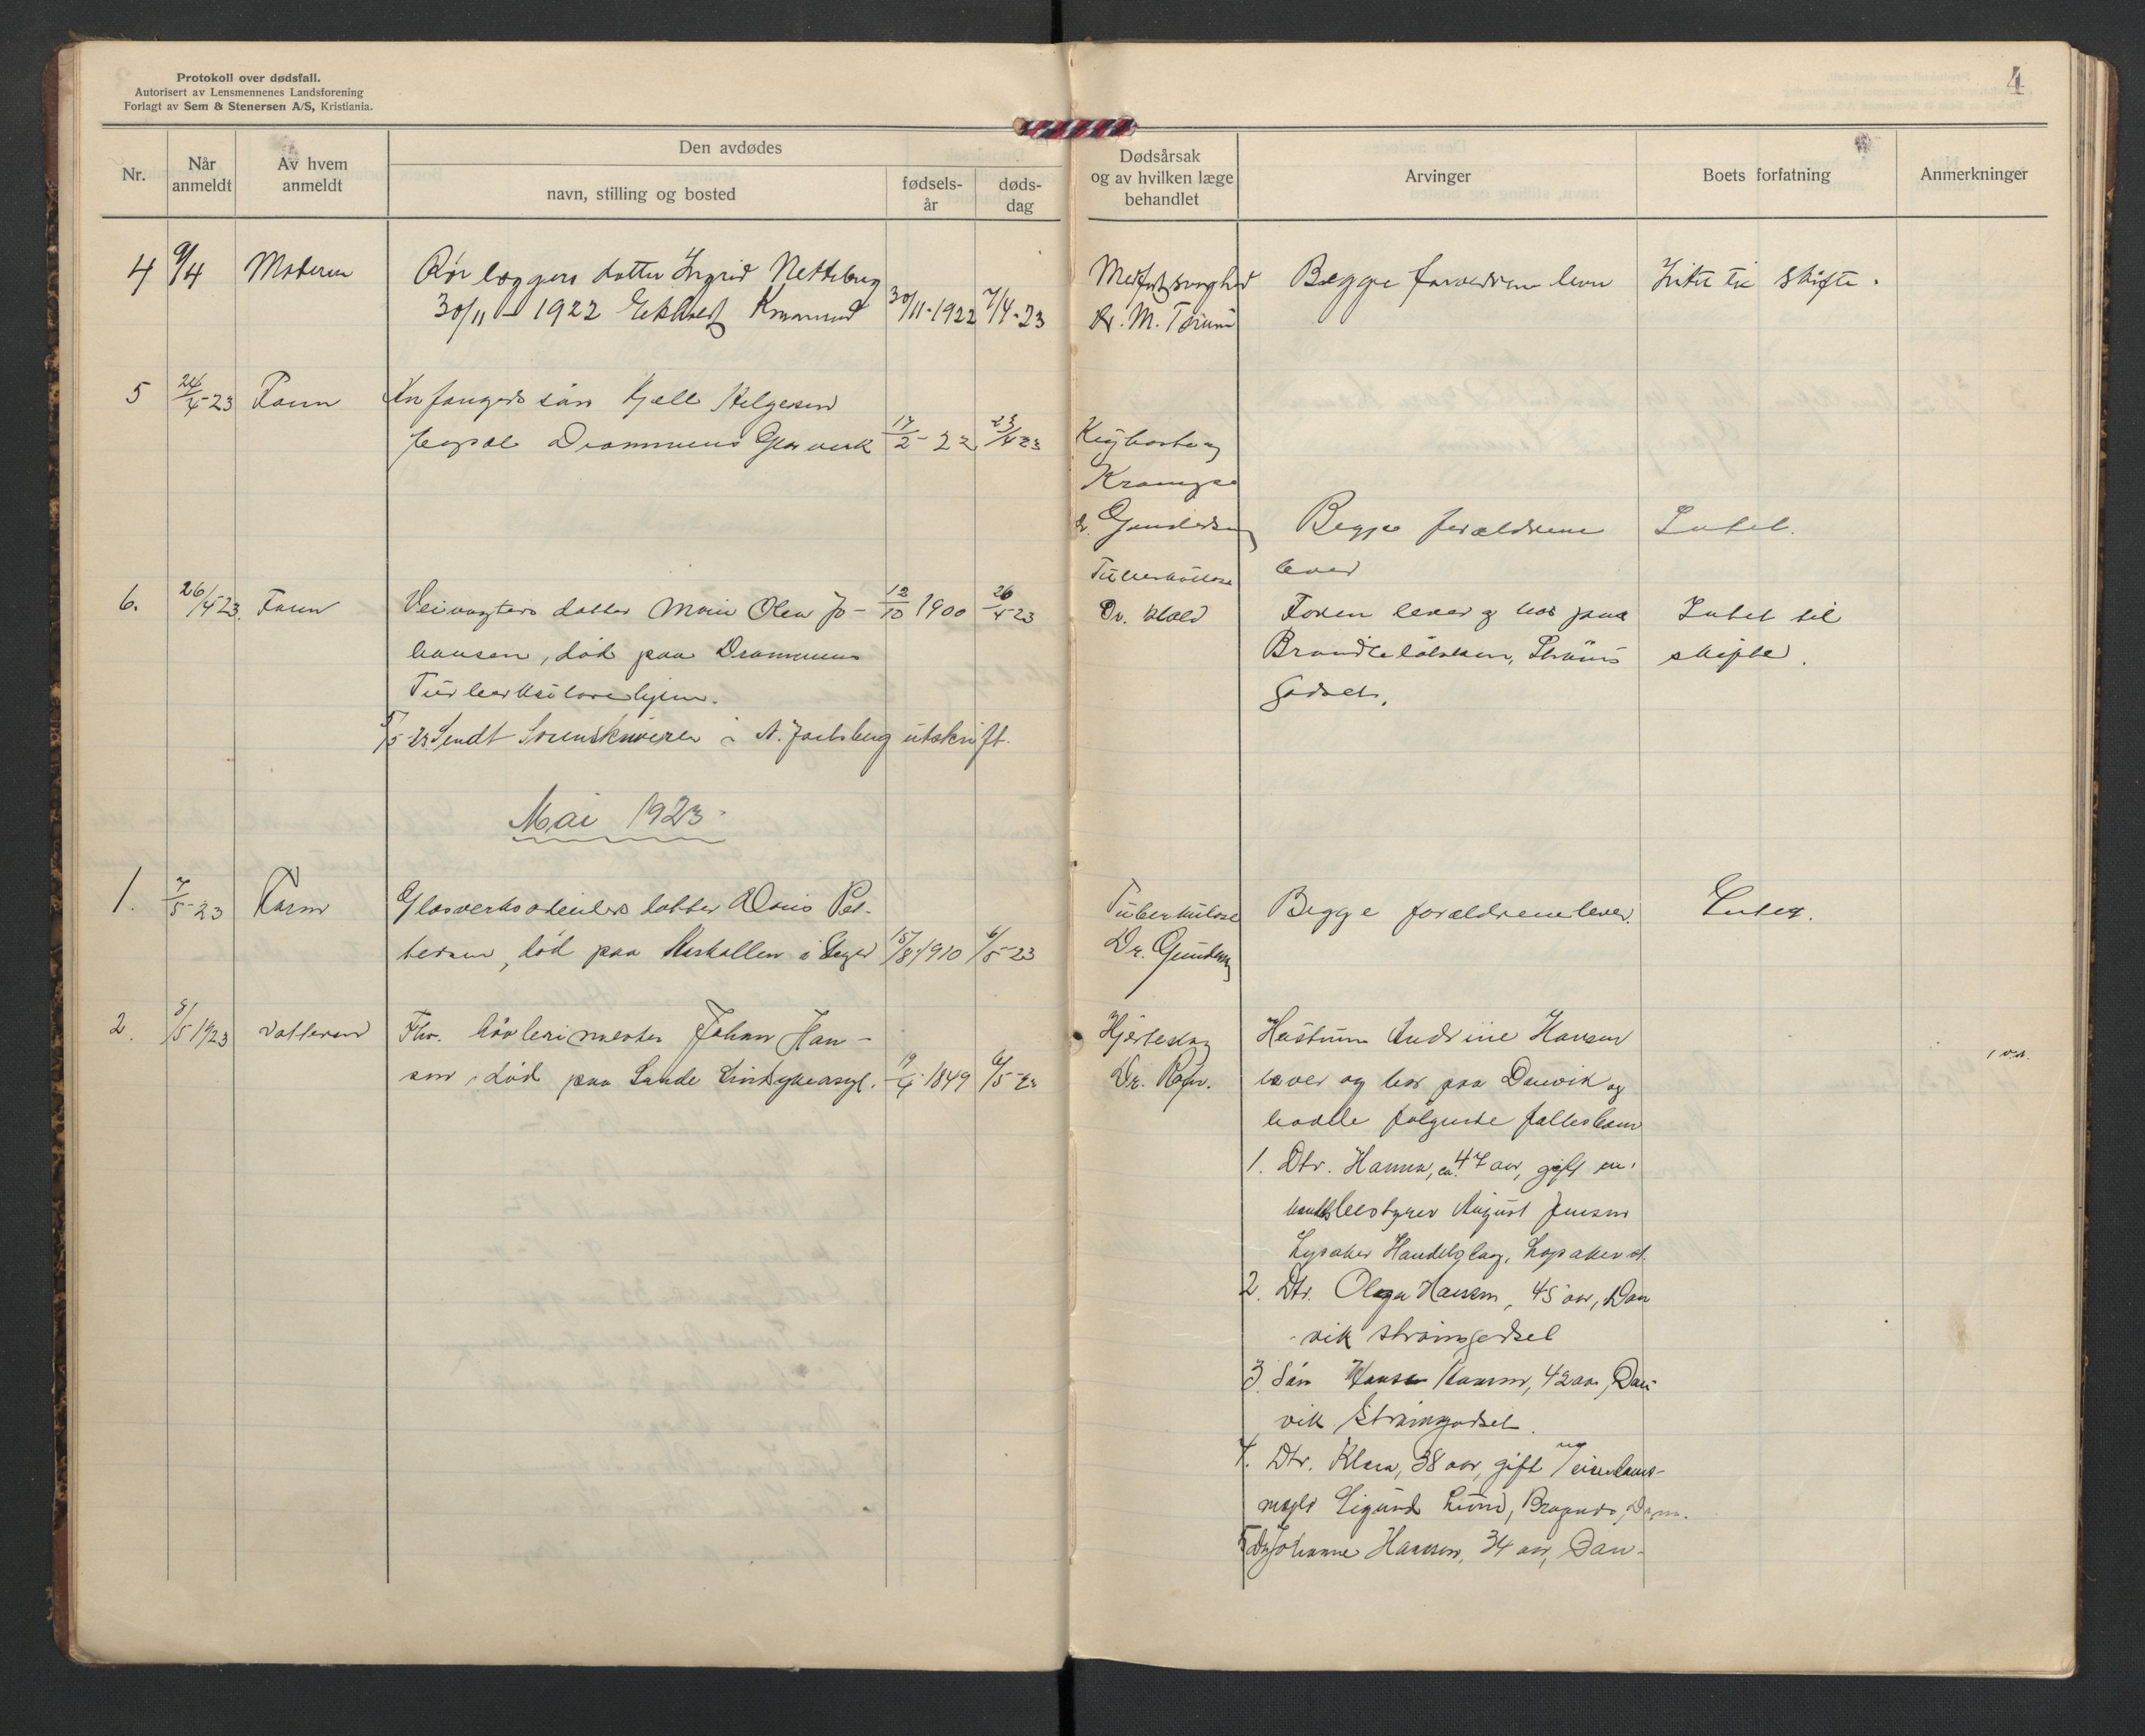 Protokoll over dødsfall.
Autorisert av Lensmennenes Landsforening
Forlagt av Sem & Stenersen A/S, Kristiania.
4
Nr.
Når anmeldt
Av hvem anmeldt
Den avdødes
navn, stilling og bosted
fødsels-år
døds-dag
Dødsårsak og av hvilken læge behandlet
Arvinger
Boets forfatning
Anmerkninger
4 9/4 Moderen
Rørlæggers datter Ingrid
30/11 - 1922 30/11-1922 7/4-23
Medfødt svaghed
Dr. M.
Begge forældrene lever
Intet til skifte.
5 24/4-23 Faren
søn Kjell Helgesen
Drammens Glasverk 17/2-22 23/4 23
Kighoste og
Krampe
Dr. Gundersen
Begge forældrene
lever
Intet.
6. 26/4 23. Faren
Veivogters datter Marie Olea Jo- 12/10 1900 26/4 23
hansen, død paa Drammens
Tuberkulosehjem.
5/5-23 Sendt Sorenskriveren i N. Jarlsberg utskrift.
Tuberkulose
Dr. Hald
Faren lever og bor paa
Strøms
godset.
Intet til
skifte.
Mai 1923
1. 7/5-23 Faren
Glasverksarbeiders datter Doris Pet-
tersen, død paa i Skoger 15/8 1910 6/5-23
Tuberkulose
Dr. Gundersen
Begge forældrene lever.
Intet.
2. 8/5 1923 Datteren
Fhv. høvlerimester Johan Han-
sen, død paa Sande 19/4-1849 6/5-23
Hjerteslag
Dr.
Hustruen Andrine Hansen
lever og bor paa Danvik og
hadde følgende fællesbarn
1. Dtr. Hanna, ca. 47 aar, gift m.
handelsbestyrer August Jensen
Lysaker Handelslag, Lysaker st.
2. Dtr. Olga Hansen, 45 aar, Dan
-vik Strømsgodset
3. Søn Hansen, 42 aar, Dan-
vik Strømsgodset.
4. Dtr. Klara, 38 aar, gift
Sigurd Lund, Bragernes, Dram.
5 Dtr Johanne Hansen, 34 aar, Dan-